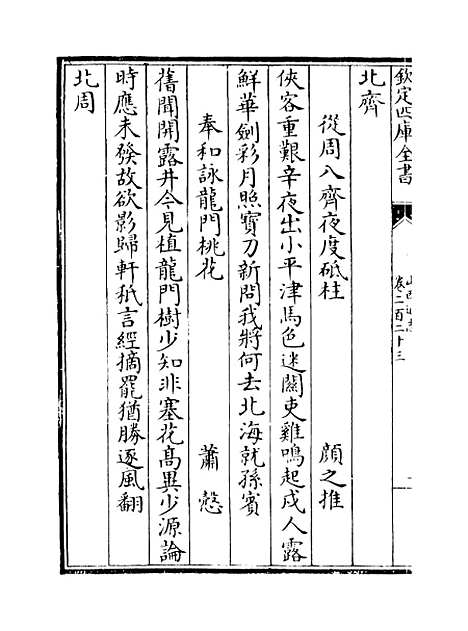 欽定四庫全書
卷二百二十三
北齊
從周入齊夜度砥柱 顔之推
俠客重艱辛夜出小平津馬色迷關吏雞鳴起戍人露
鮮華劍彩月照寶刀新問我將何去北海就孫賓
奉和詠龍門桃花 蕭慤
舊聞開露井今見植龍門樹少知非塞花髙異少源論
時應未發故欲影歸軒秪言經摘罷猶勝逐風翻
北周